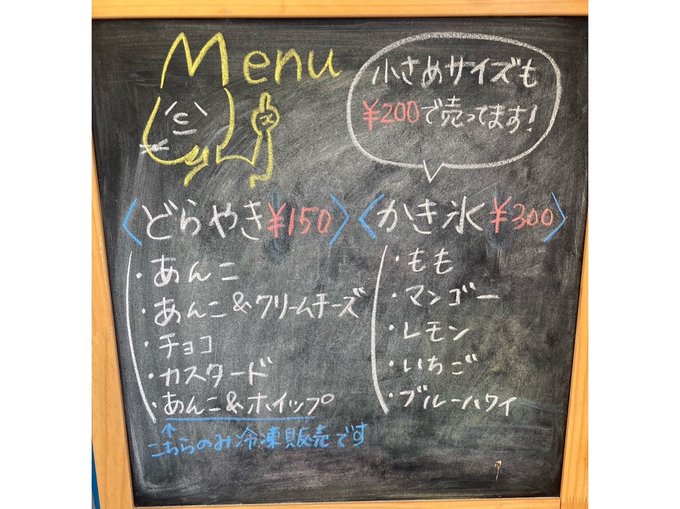 Menu
小さめサイズも
¥200で売ってます!
〈どらやき¥150〉
・あんこ
・あんこ&クリームチーズ
・チョコ
・カスタード
・あんこ&ホイップ
↑
こちらのみ冷凍販売です
〈かき氷¥300〉
・もも
・マンゴー
・レモン
・いちご
・ブルーハワイ